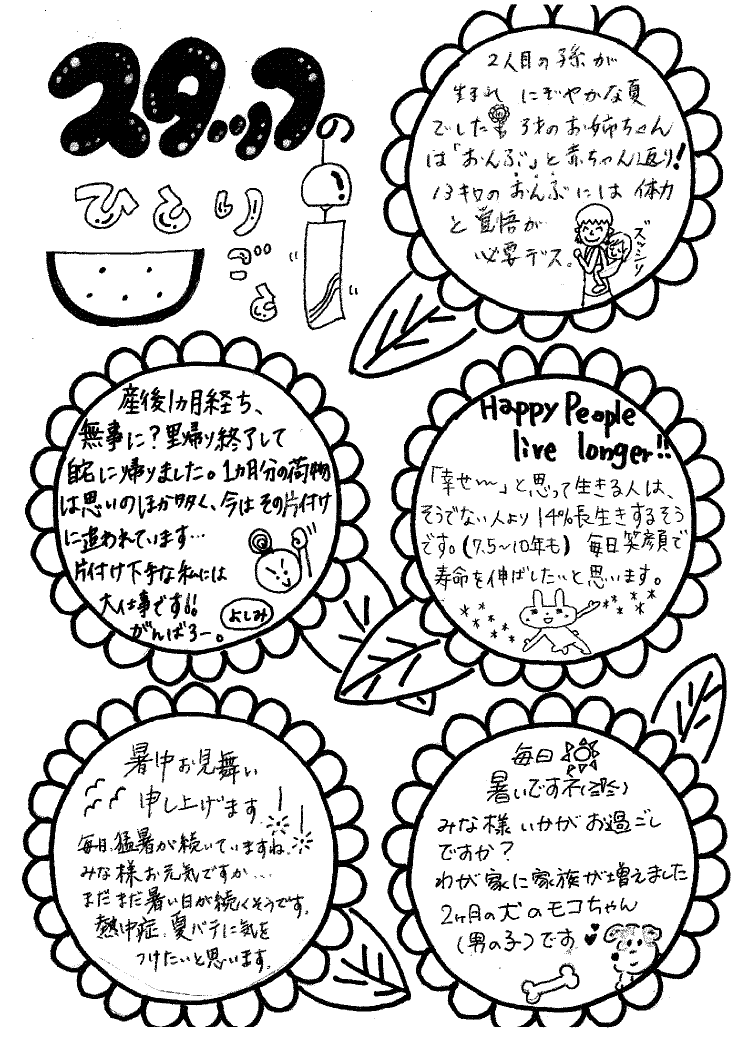 スタッフの
ひとり
ごと
2人目の孫が
生まれ にぎやかな夏
でした 3才のお姉ちゃん
は「おんぶ」と赤ちゃん返り!
13キロのおんぶには 体力
と覚悟が
必要デス。
ズッシリ
産後1カ月経ち、
無事に?里帰り終了して
自宅に帰りました。1カ月分の荷物
は思いのほか多く、今はその片付け
に追われています…
片付け下手な私には
大仕事です!!
がんばろー。
よしみ
Happy People
live longer!!
「幸せ〜」と思って生きる人は、
そうでない人より14%長生きするそう
です。(7.5~10年も) 毎日笑顔で
寿命を伸ばしたいと思います。
暑中お見舞い
申し上げます
毎日、猛暑が続いていますね。
みな様お元気ですか…
まだまだ暑い日が続くそうです。
熱中症、夏バテに気を
つけたいと思います。
毎日
暑いですネ
みな様いかがお過ごし
ですか?
わが家に家族が増えました
2ヶ月の犬のモコちゃん
(男の子)です♥